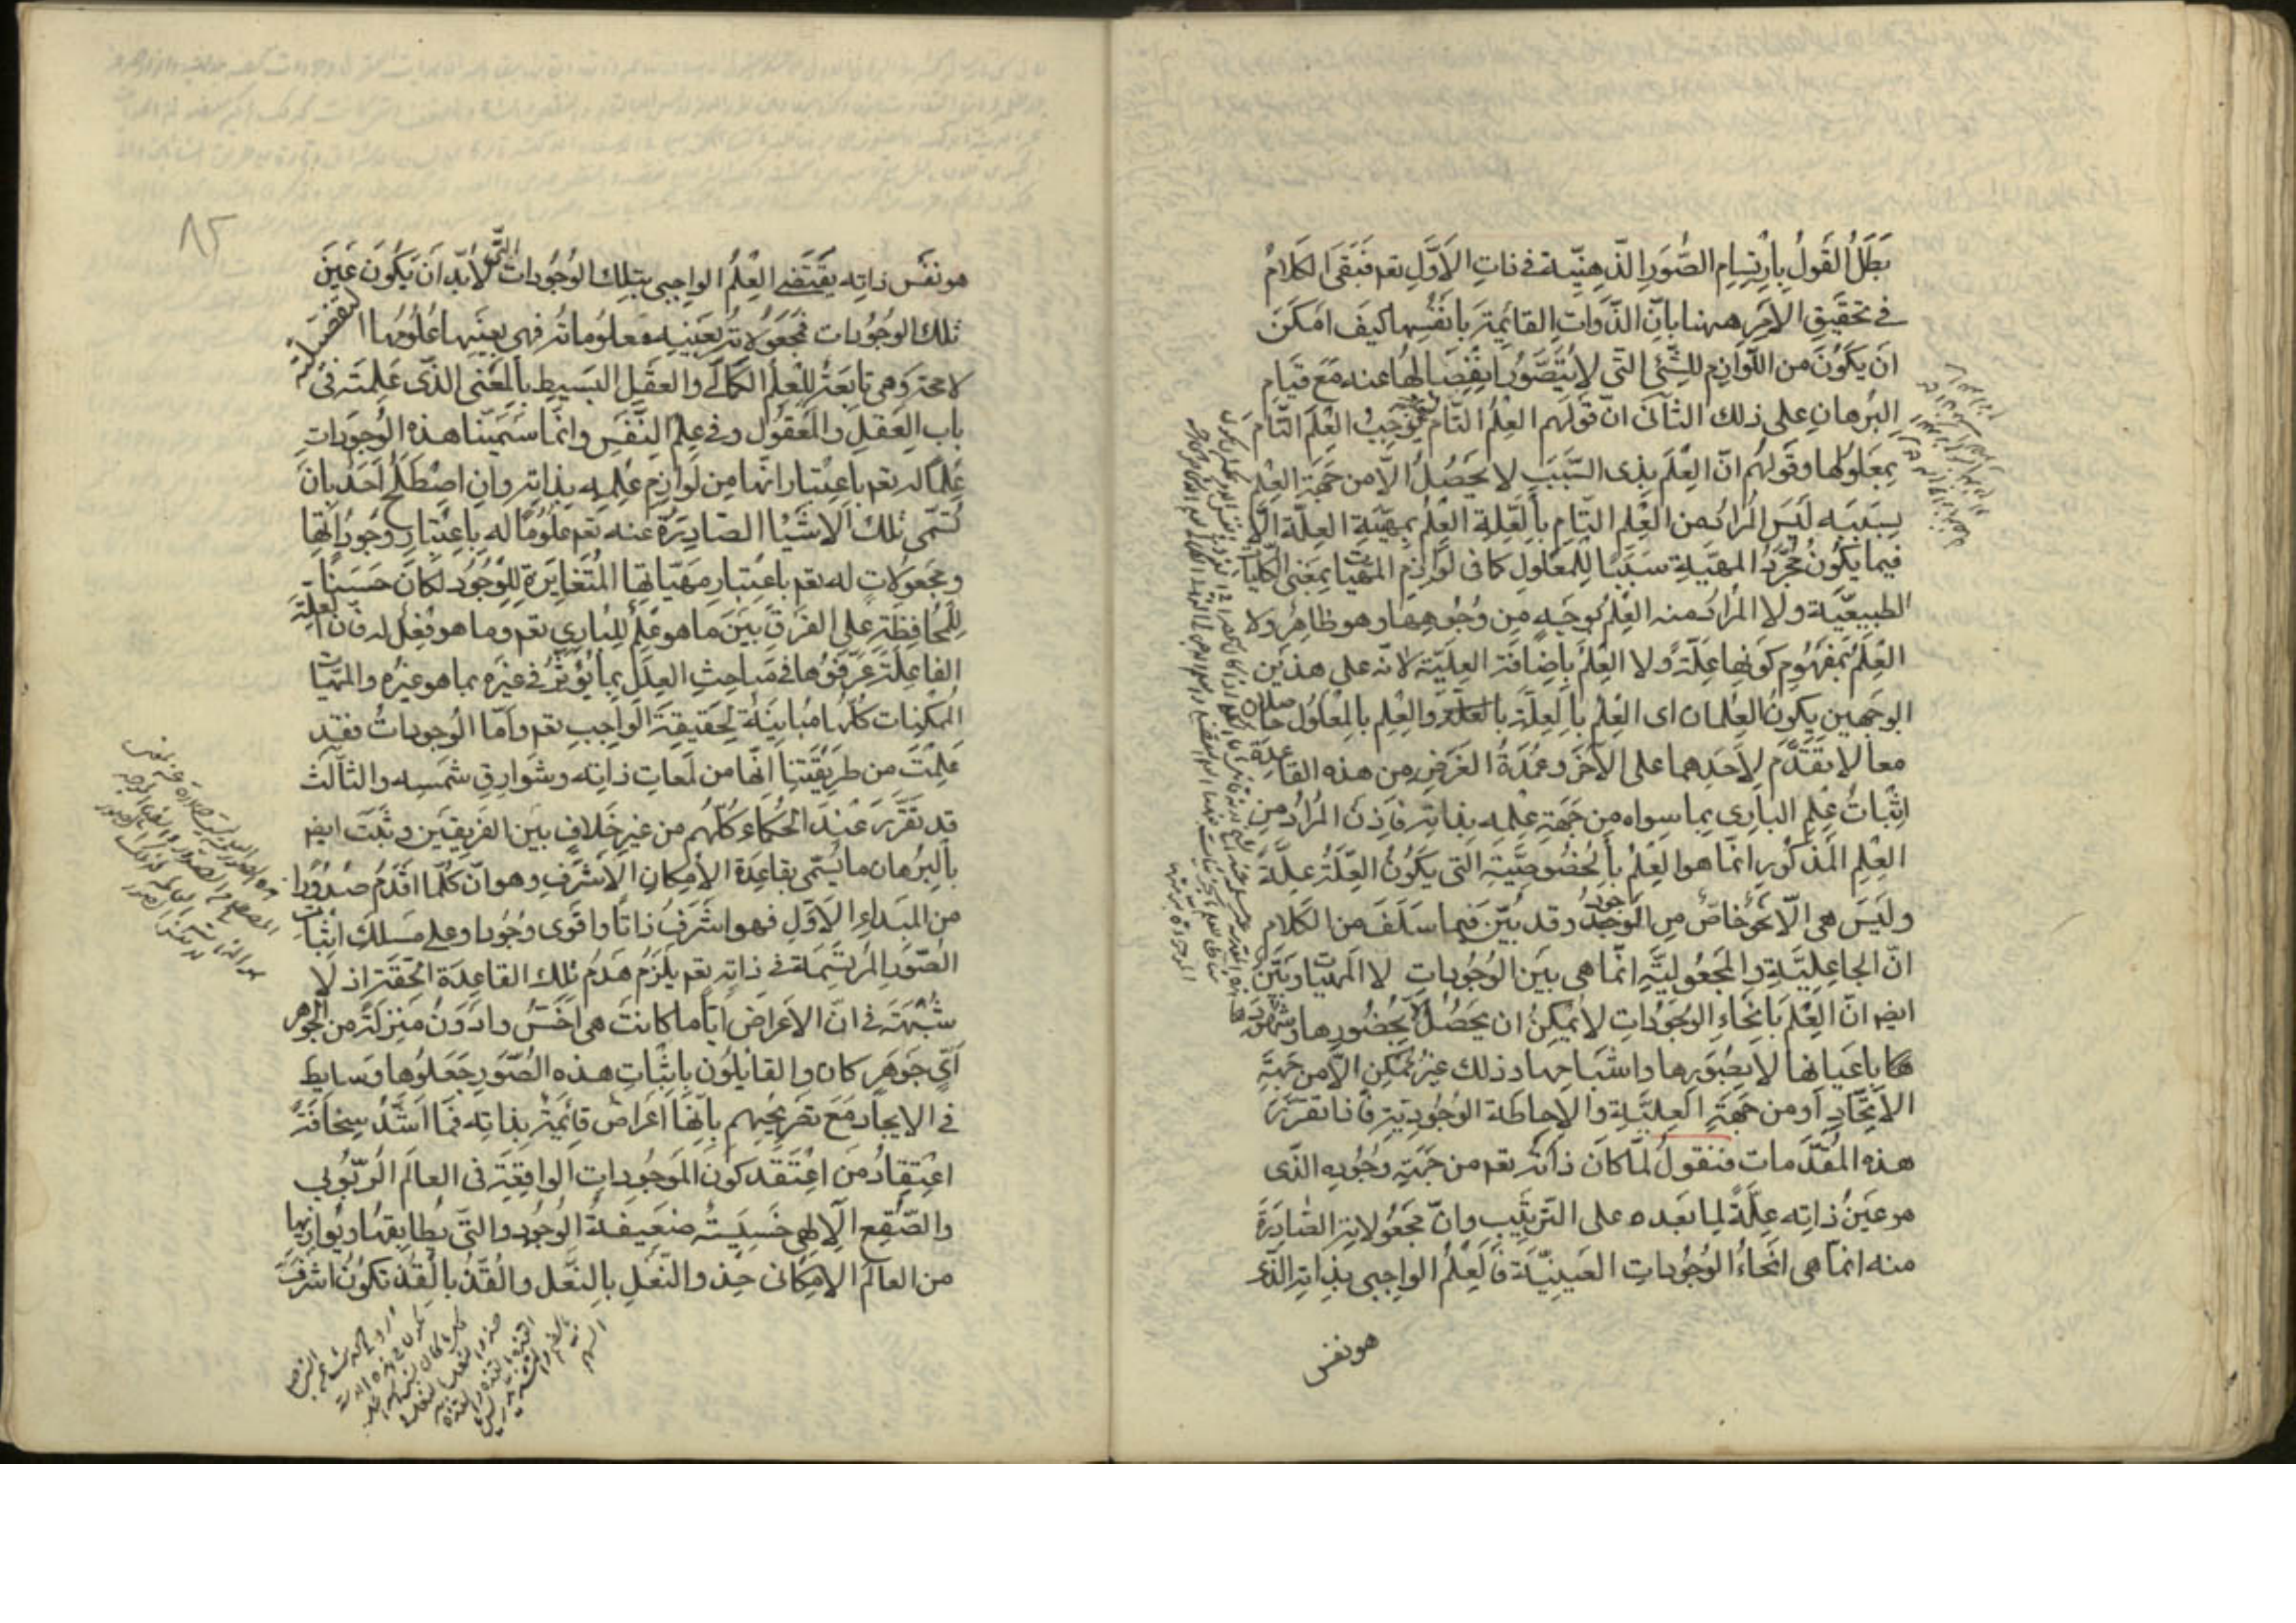 بَطَلَ القَولُ بِاِرْتِسامِ الصُّوَرِ الذِّهنِيَّة فى ذاتِ الاَوَّلِ تعم فَبَقَى الكَلامُ
فى تحقيقِ الاَمرِ ههنا بانّ الذَّواتِ القائِمَة بانفُسِها كيفَ امكَنَ
ان يكونَ من اللّوازِم للشّئ التى لا يُتَصَوَّرُ انفِصالها عنه مع قيامِ
البُرهانِ على ذلك الثانى انّ قولهم العِلمُ التّام يُوجِبُ العِلمَ التّامَ
بِمعلولها وقولَهم انّ العِلمَ بِذى السَّبَبِ لا يَحصُلُ الاّ من جهةِ العِلمِ
بِسَبَبِه لَيسَ المرادُ من العِلمِ التّامِ بالعِلّةِ العِلمُ بِمهيّةِ العِلّة الّا
فيما يكونُ مُجرَّدُ المهيّةِ سَبَبًا لِلمعلولِ كما فى لوازِمِ المهيّات بمعنى الكُلّيات
الطبيعيّة ولا المُراد منه العِلمُ بِوجهٍ من وُجُوهِها وهو ظاهِرٌ ولا
العِلمَ بمفهوم كونها عِلّةً ولا العِلمُ باضافة العِلّيّة لانّه على هذين
الوجهينِ يكونُ العِلمان اى العِلمُ بالعِلّة والعِلمِ بالمعلولِ حاصلان
معا لا تقدُّم لاحدِهما على الآخر وعُمدَةُ الغرضِ من هذه القاعدة
اثباتُ عِلمِ البارى بما سِواه من جهةِ علمه بذاته فاذن المُرادُ من
العِلمِ المذكورِ انّما هو العِلمُ بالخُصُوصيَّةِ التى يكونُ العِلّةُ علّةً
وليسَ هى الّا نحوٌ خاصٌّ من الوجود وقد بُيِّنَ فيما سَلَفَ من الكلام
انّ الجاعِليّةِ والمَجعُوليّةِ انّما هى بين الوُجُودات لا المهيّات وبيّن
ايضا انّ العِلمَ بانحاءِ الوُجُوداتِ لا يُمكِنُ ان يحصُلَ الّا بحُضُورِها وشهود
ها باعيانها لا بِصُوَرِها واشباحِها وذلك غيرُ ممكنٍ الّا من جهة
الاتّحادِ او من جهةِ العِلّيّةِ والاِحاطة الوُجُوديّة فاذا تقرّر
هذه المُقدّمات فنقولُ لمّا كان ذاتُه تعم من جهةِ وجُودِه الذّى
هو عينُ ذاتِه عِلّةً لما بعده على التّرتيبِ وانّ مجعولاته الصّادرة
منه انّما هى انحاءُ الوُجُوداتِ العينيّة فالعِلمُ الواجبى بذاته الذى
هو نفس
٨٢
هو نفسُ ذاتِه يقتضى العِلمُ الواجِبى بتلك الوُجُودات التى لابُدّ ان يكون عينَ
تلك الوجُودات فمجعولاتُه بعينه معلوماتُه فهى بعينِها عُلُومُها التفصيليّة
لا محة وهى تابعَةٌ لِلعِلمِ الكَمالى والعقلِ البَسيطِ بالمعنى الذّى عَلِمتَه فى
بابِ العقلِ والمعقُولِ وفى علمِ النّفسِ وانّما سَمَّينا هذه الوُجوداتِ
عِلمًا له تعم باعتبار انّها من لَوازِم عِلمِه بذاته وان اصطَلَحَ احدٌ بان
تُسمّى تلك الاشياا الصّادِرَة عنه تعم علُومًا له باعتبارِ وجُوداتها
ومجعولات له تعم باعتبارِ مهيّاتها المُتغايرة للوُجُودِ لكان حَسَنًا
لِلمُحافِظةِ على الفرقِ بين ما هو علمٌ للبارى تعم وما هو فعلٌ له فانّ العِلّة
الفاعِلة عرّفوها فى مباحِثِ العِلَل بما يُؤثّرُ فى غيره بما هو غيره والمهيّات
المُمكِنات كلّها مُباينةٌ لحقيقةِ الواجبِ تعم وامّا الوجوداتُ فقد
علِمتَ من طريقتِنا انّها من لَمعاتِ ذاتِه وشوارِقِ شمسِه والثّالث
قد تقرّر عندَ الحُكماء كُلّهم من غيرِ خلافٍ بين الفريقين وثبت ايضا
بالبُرهان ما يُسمّى بقاعدة الامكانِ الاشرَفِ وهو انّ كُلّما اقدَمُ صُدُورًا
من المبداءِ الاوّلِ فهو اشرَفُ ذاتًا واقوى وجُودا وعلى مَسلكِ اثبات
الصُّورِ المُرتَسِمَة فى ذاتِه تعم يلزَمُ هَدمُ تلك القاعِدَة الحقّة اذ لا
شُبهَة فى انّ الاعراضَ ايّاما كانت هى اخَسُّ وادوَنُ منزلةً من الجوهر
اىّ جوهرٍ كان والقائِلُون باثباتِ هذه الصُّورِ جعلُوها وسايط
فى الايجادِ مع تصريحِهم بانّها اعراضٌ قائمَةٌ بذاتِه فما اشدّ سخافةً
اعتِقادُ من اعتقدَ كون المَوجُوداتِ الواقِعةِ فى العالَم الرّبُوبى
والصُّقعِ الالهىِ خَسيسَةٌ ضعيفةُ الوُجُودِ والتى يُطابِقُها ويُوازيها
من العالَمِ الامكانى حذو النّعلِ بالنّعل والقُذّ بالقُذّ تكونُ اشرفَ